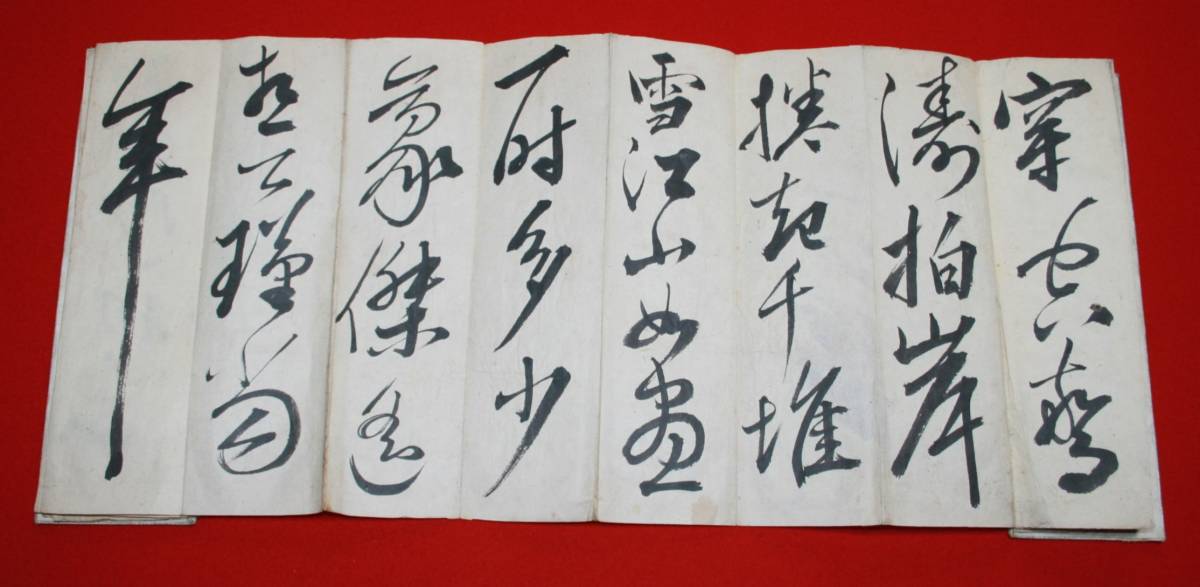 穿空驚
濤拍岸
捲起千堆
雪江山如畫
一时多少
豪傑遙
想公瑾當
年